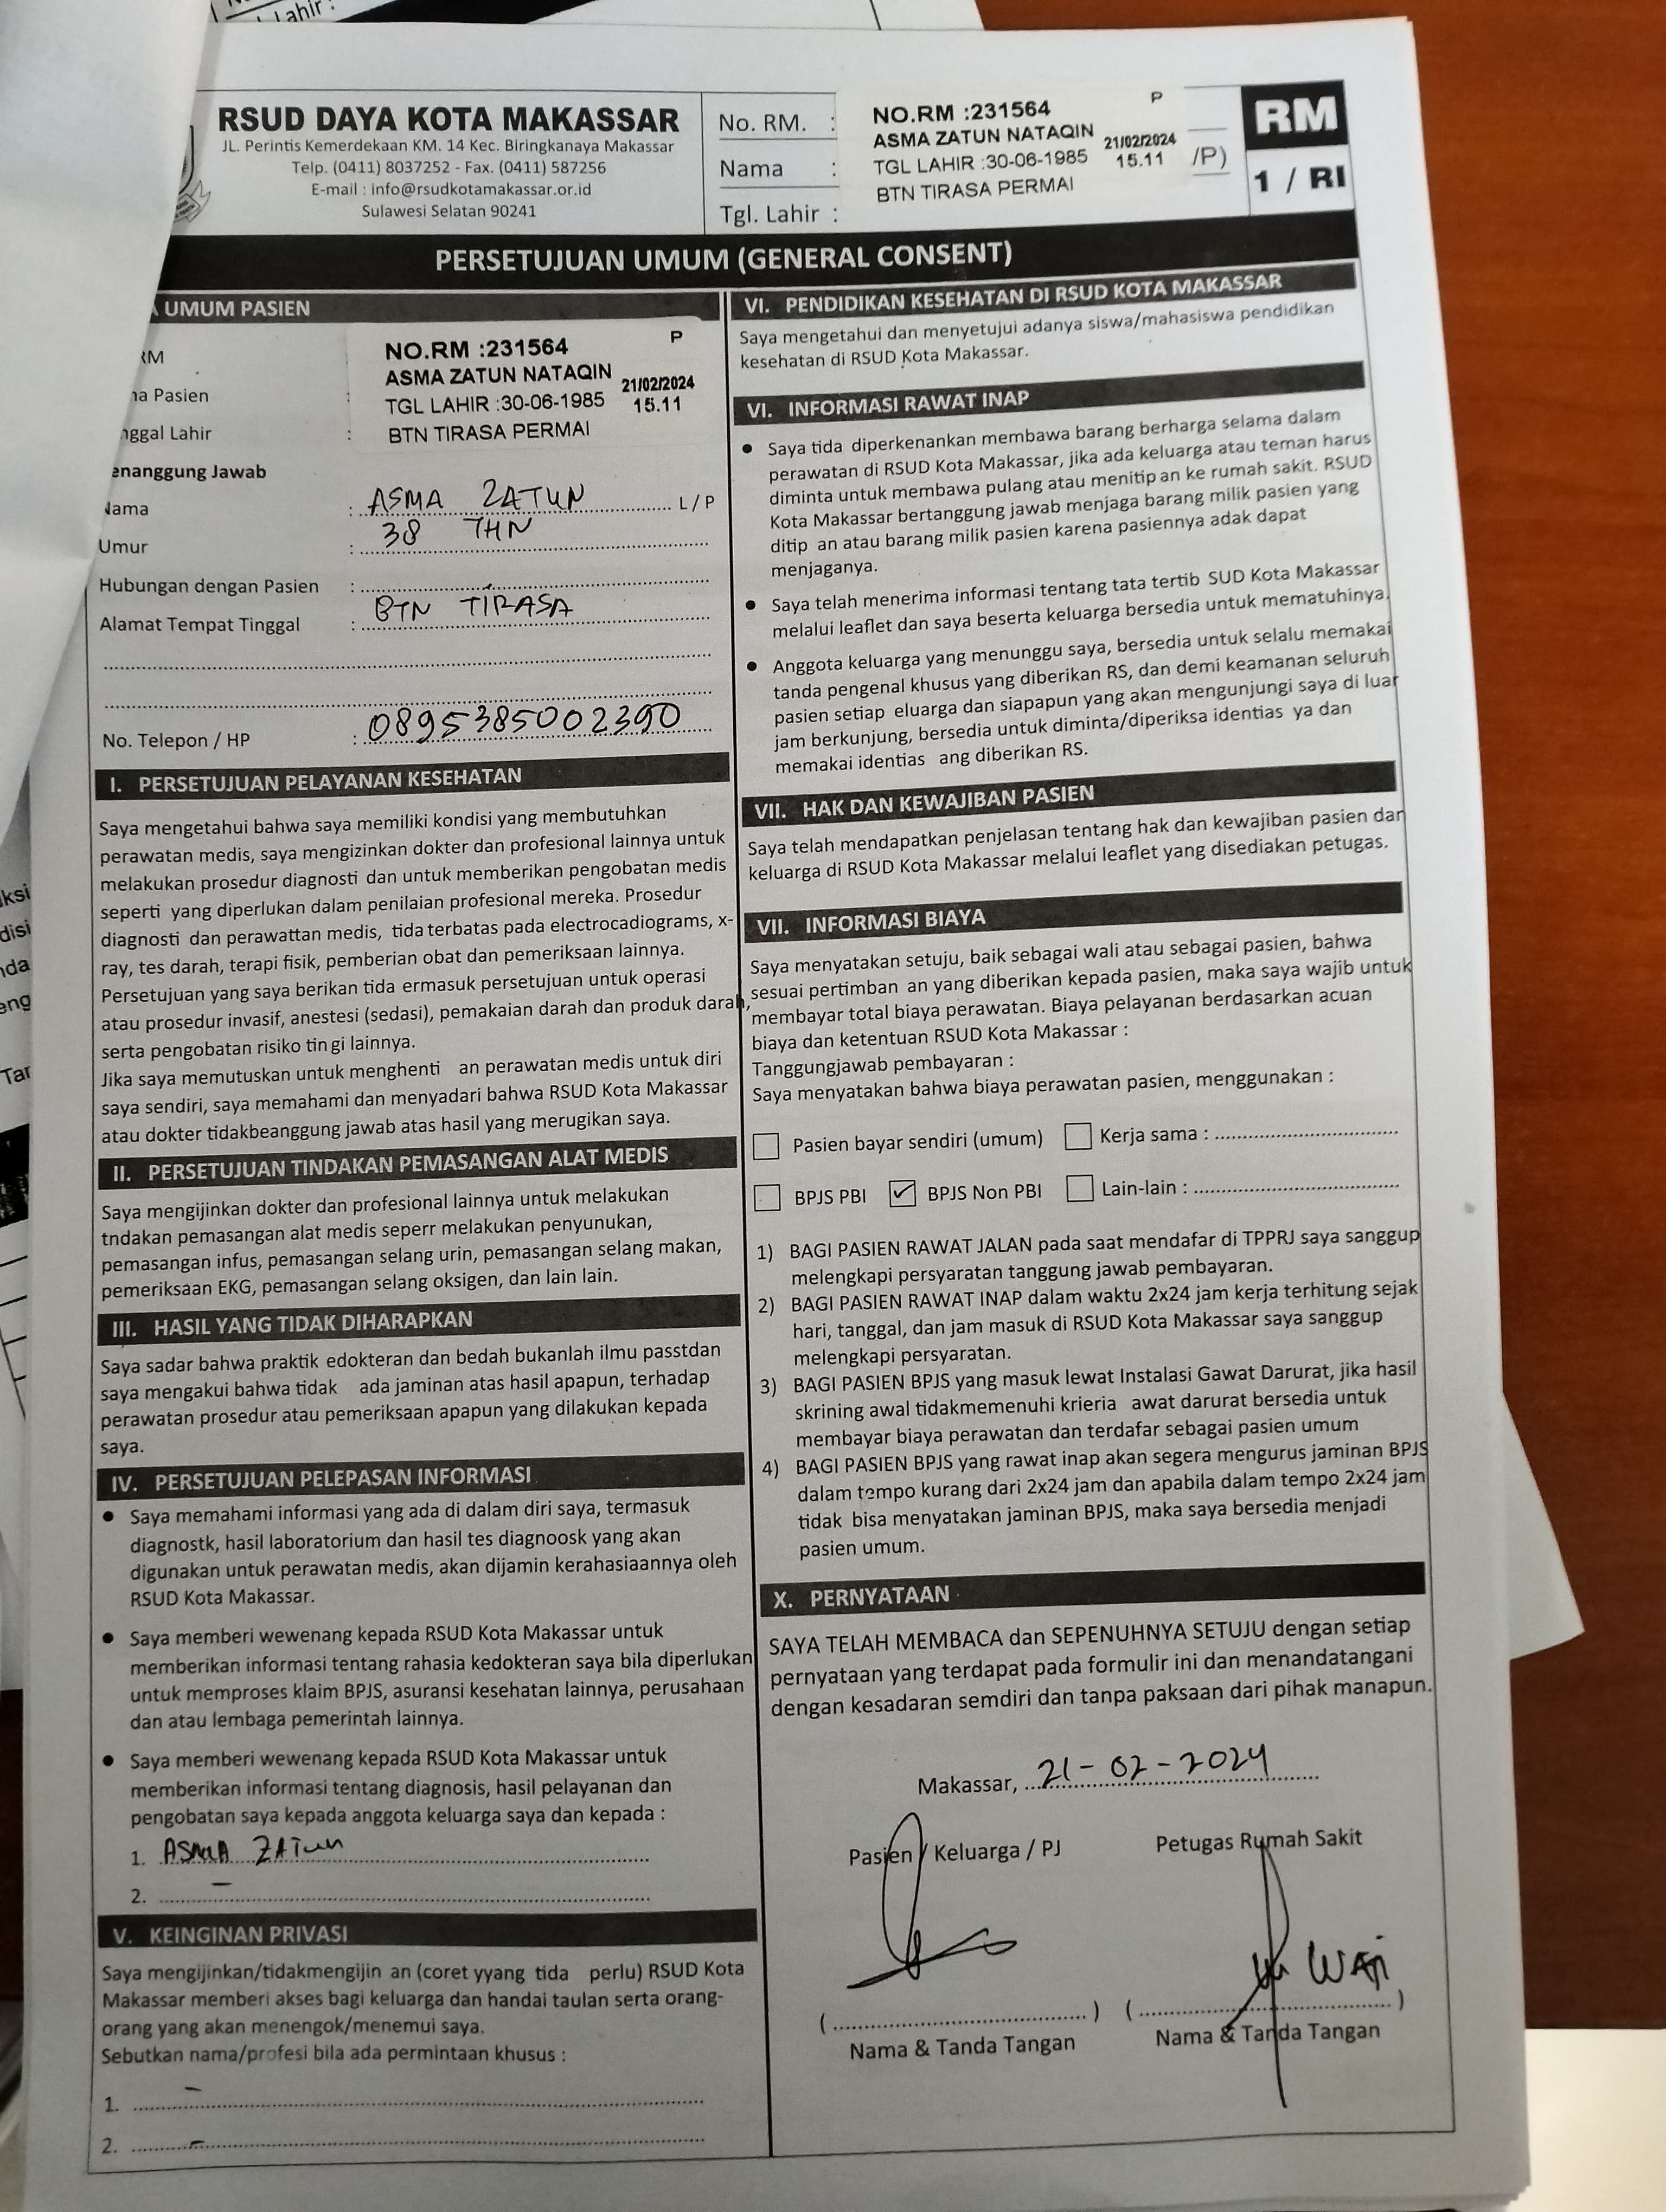 Lahir :
RSUD DAYA KOTA MAKASSAR
JL. Perintis Kemerdekaan KM. 14 Kec. Biringkanaya Makassar
Telp. (0411) 8037252 - Fax. (0411) 587256
E-mail : info@rsudkotamakassar.or.id
Sulawesi Selatan 90241
No. RM. :
Nama :
Tgl. Lahir :
P
NO.RM :231564
ASMA ZATUN NATAQIN 21/02/2024
TGL LAHIR :30-06-1985 15.11
BTN TIRASA PERMAI
/P)
RM
1 / RI
PERSETUJUAN UMUM (GENERAL CONSENT)
UMUM PASIEN
RM
Pasien :
nggal Lahir :
P
NO.RM :231564
ASMA ZATUN NATAQIN 21/02/2024
TGL LAHIR :30-06-1985 15.11
BTN TIRASA PERMAI
enanggung Jawab
Nama : ASMA ZATUN L / P
Umur : 38 THN
Hubungan dengan Pasien :
Alamat Tempat Tinggal : BTN TIRASA
No. Telepon / HP : 0895385002390
I. PERSETUJUAN PELAYANAN KESEHATAN
Saya mengetahui bahwa saya memiliki kondisi yang membutuhkan
perawatan medis, saya mengizinkan dokter dan profesional lainnya untuk
melakukan prosedur diagnosti dan untuk memberikan pengobatan medis
seperti yang diperlukan dalam penilaian profesional mereka. Prosedur
diagnosti dan perawattan medis, tida terbatas pada electrocadiograms, x-
ray, tes darah, terapi fisik, pemberian obat dan pemeriksaan lainnya.
Persetujuan yang saya berikan tida ermasuk persetujuan untuk operasi
atau prosedur invasif, anestesi (sedasi), pemakaian darah dan produk darah,
serta pengobatan risiko tin gi lainnya.
Jika saya memutuskan untuk menghenti an perawatan medis untuk diri
saya sendiri, saya memahami dan menyadari bahwa RSUD Kota Makassar
atau dokter tidakbeanggung jawab atas hasil yang merugikan saya.
II. PERSETUJUAN TINDAKAN PEMASANGAN ALAT MEDIS
Saya mengijinkan dokter dan profesional lainnya untuk melakukan
tndakan pemasangan alat medis seperr melakukan penyunukan,
pemasangan infus, pemasangan selang urin, pemasangan selang makan,
pemeriksaan EKG, pemasangan selang oksigen, dan lain lain.
III. HASIL YANG TIDAK DIHARAPKAN
Saya sadar bahwa praktik edokteran dan bedah bukanlah ilmu passtdan
saya mengakui bahwa tidak ada jaminan atas hasil apapun, terhadap
perawatan prosedur atau pemeriksaan apapun yang dilakukan kepada
saya.
IV. PERSETUJUAN PELEPASAN INFORMASI
● Saya memahami informasi yang ada di dalam diri saya, termasuk
diagnostk, hasil laboratorium dan hasil tes diagnoosk yang akan
digunakan untuk perawatan medis, akan dijamin kerahasiaannya oleh
RSUD Kota Makassar.
● Saya memberi wewenang kepada RSUD Kota Makassar untuk
memberikan informasi tentang rahasia kedokteran saya bila diperlukan
untuk memproses klaim BPJS, asuransi kesehatan lainnya, perusahaan
dan atau lembaga pemerintah lainnya.
● Saya memberi wewenang kepada RSUD Kota Makassar untuk
memberikan informasi tentang diagnosis, hasil pelayanan dan
pengobatan saya kepada anggota keluarga saya dan kepada :
1. ASMA ZATUN
2. -
V. KEINGINAN PRIVASI
Saya mengijinkan/tidakmengijin an (coret yyang tida perlu) RSUD Kota
Makassar memberi akses bagi keluarga dan handai taulan serta orang-
orang yang akan menengok/menemui saya.
Sebutkan nama/profesi bila ada permintaan khusus :
1. -
2. -
VI. PENDIDIKAN KESEHATAN DI RSUD KOTA MAKASSAR
Saya mengetahui dan menyetujui adanya siswa/mahasiswa pendidikan
kesehatan di RSUD Kota Makassar.
VI. INFORMASI RAWAT INAP
● Saya tida diperkenankan membawa barang berharga selama dalam
perawatan di RSUD Kota Makassar, jika ada keluarga atau teman harus
diminta untuk membawa pulang atau menitip an ke rumah sakit. RSUD
Kota Makassar bertanggung jawab menjaga barang milik pasien yang
ditip an atau barang milik pasien karena pasiennya adak dapat
menjaganya.
● Saya telah menerima informasi tentang tata tertib SUD Kota Makassar
melalui leaflet dan saya beserta keluarga bersedia untuk mematuhinya.
● Anggota keluarga yang menunggu saya, bersedia untuk selalu memakai
tanda pengenal khusus yang diberikan RS, dan demi keamanan seluruh
pasien setiap eluarga dan siapapun yang akan mengunjungi saya di luar
jam berkunjung, bersedia untuk diminta/diperiksa identias ya dan
memakai identias ang diberikan RS.
VII. HAK DAN KEWAJIBAN PASIEN
Saya telah mendapatkan penjelasan tentang hak dan kewajiban pasien dan
keluarga di RSUD Kota Makassar melalui leaflet yang disediakan petugas.
VII. INFORMASI BIAYA
Saya menyatakan setuju, baik sebagai wali atau sebagai pasien, bahwa
sesuai pertimban an yang diberikan kepada pasien, maka saya wajib untuk
membayar total biaya perawatan. Biaya pelayanan berdasarkan acuan
biaya dan ketentuan RSUD Kota Makassar :
Tanggungjawab pembayaran :
Saya menyatakan bahwa biaya perawatan pasien, menggunakan :
☐ Pasien bayar sendiri (umum) ☐ Kerja sama :
☐ BPJS PBI ☑ BPJS Non PBI ☐ Lain-lain :
1) BAGI PASIEN RAWAT JALAN pada saat mendafar di TPPRJ saya sanggup
melengkapi persyaratan tanggung jawab pembayaran.
2) BAGI PASIEN RAWAT INAP dalam waktu 2x24 jam kerja terhitung sejak
hari, tanggal, dan jam masuk di RSUD Kota Makassar saya sanggup
melengkapi persyaratan.
3) BAGI PASIEN BPJS yang masuk lewat Instalasi Gawat Darurat, jika hasil
skrining awal tidakmemenuhi krieria awat darurat bersedia untuk
membayar biaya perawatan dan terdafar sebagai pasien umum
4) BAGI PASIEN BPJS yang rawat inap akan segera mengurus jaminan BPJS
dalam tempo kurang dari 2x24 jam dan apabila dalam tempo 2x24 jam
tidak bisa menyatakan jaminan BPJS, maka saya bersedia menjadi
pasien umum.
X. PERNYATAAN
SAYA TELAH MEMBACA dan SEPENUHNYA SETUJU dengan setiap
pernyataan yang terdapat pada formulir ini dan menandatangani
dengan kesadaran semdiri dan tanpa paksaan dari pihak manapun.
Makassar, 21-02-2024
Pasien / Keluarga / PJ Petugas Rumah Sakit
WATI
( ) ( )
Nama & Tanda Tangan Nama & Tanda Tangan